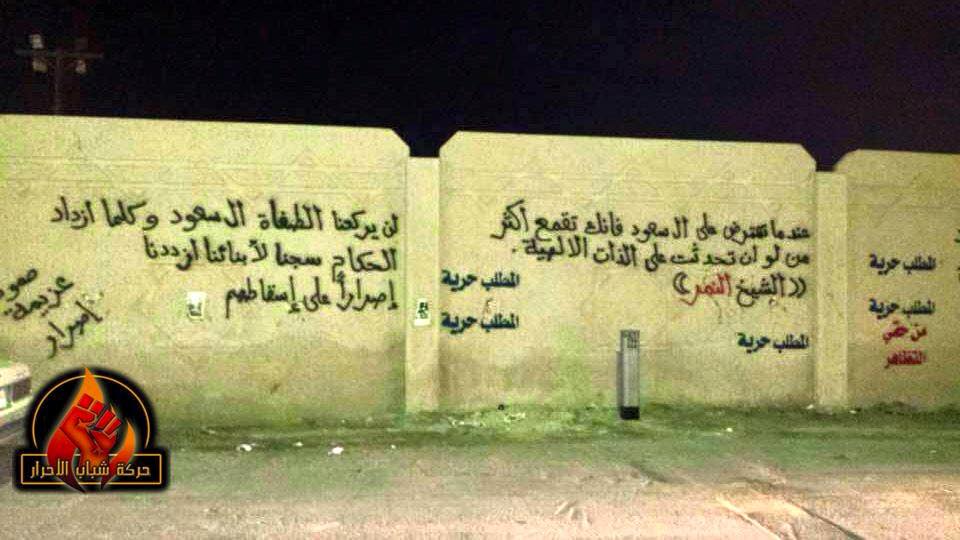 عندما تعترض على ال سعود فانك تقمع أكثر
من لو ان تحدثت على الذات الالهية .
((الشيخ النمر))
لن يركعنا الطغاة ال سعود وكلما ازداد
الحكام سجنا لأبنائنا ازددنا
إصراراً على إسقاطهم
المطلب حرية
المطلب حرية
المطلب حرية
المطلب حرية
المطلب حرية
من حقي
التظاهر
صمود
عزيمة
إصرار
حركة شباب الأحرار